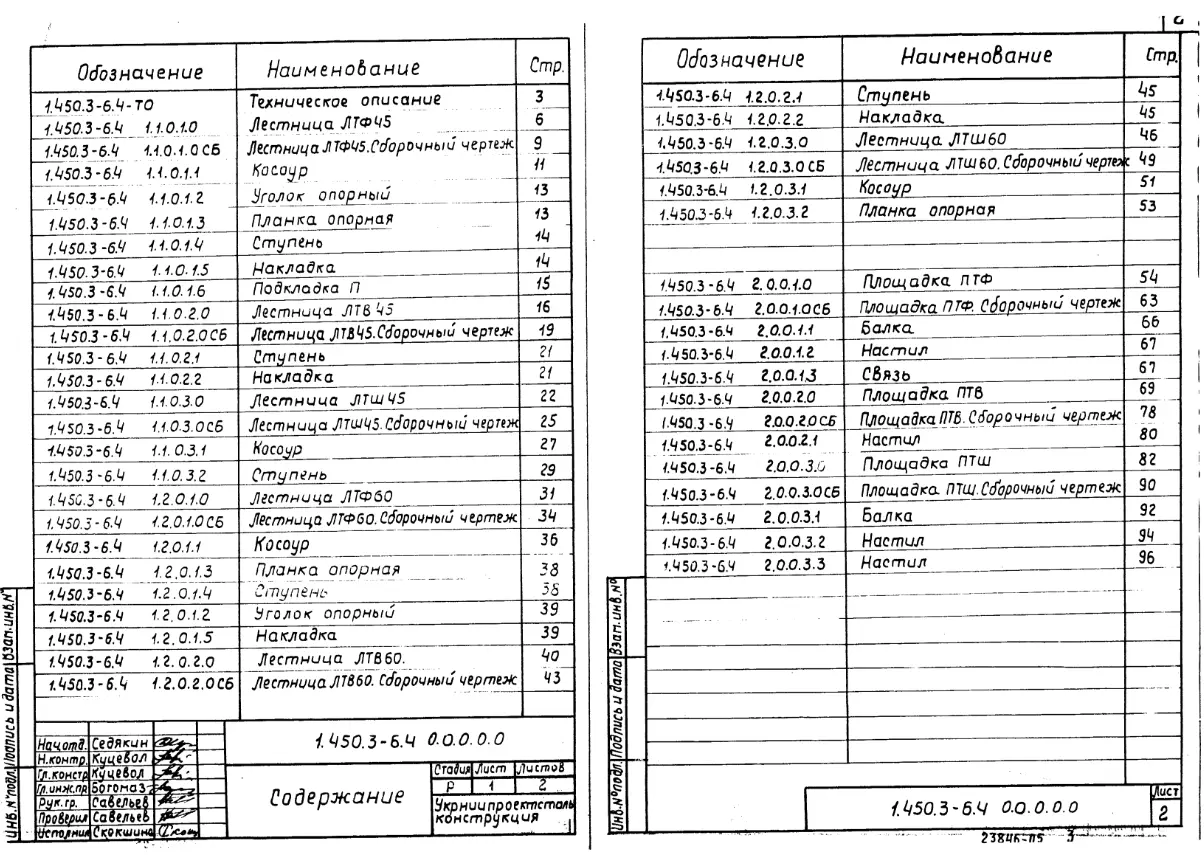 Обозначение Наименование Стр.
1.450.3-6.4-ТО Техническое описание 3
1.450.3-6.4 1.1.0.1.0 Лестница ЛТФ45 6
1.450.3-6.4 1.1.0.1.0СБ Лестница ЛТФ45.Сборочный чертеж 9
1.450.3-6.4 1.1.0.1.1 Косоур 11
1.450.3-6.4 1.1.0.1.2 Уголок опорный 13
1.450.3-6.4 1.1.0.1.3 Планка опорная 13
1.450.3-6.4 1.1.0.1.4 Ступень 14
1.450.3-6.4 1.1.0.1.5 Накладка 14
1.450.3-6.4 1.1.0.1.6 Подкладка П 15
1.450.3-6.4 1.1.0.2.0 Лестница ЛТВ45 16
1.450.3-6.4 1.1.0.2.0СБ Лестница ЛТВ45.Сборочный чертеж 19
1.450.3-6.4 1.1.0.2.1 Ступень 21
1.450.3-6.4 1.1.0.2.2 Накладка 21
1.450.3-6.4 1.1.0.3.0 Лестница ЛТШ45 22
1.450.3-6.4 1.1.0.3.0СБ Лестница ЛТШ45.Сборочный чертеж 25
1.450.3-6.4 1.1.0.3.1 Косоур 27
1.450.3-6.4 1.1.0.3.2 Ступень 29
1.450.3-6.4 1.2.0.1.0 Лестница ЛТФ60 31
1.450.3-6.4 1.2.0.1.0СБ Лестница ЛТФ60.Сборочный чертеж 34
1.450.3-6.4 1.2.0.1.1 Косоур 36
1.450.3-6.4 1.2.0.1.3 Планка опорная 38
1.450.3-6.4 1.2.0.1.4 Ступень 38
1.450.3-6.4 1.2.0.1.2 Уголок опорный 39
1.450.3-6.4 1.2.0.1.5 Накладка 39
1.450.3-6.4 1.2.0.2.0 Лестница ЛТВ60. 40
1.450.3-6.4 1.2.0.2.0СБ Лестница ЛТВ60. Сборочный чертеж 43
Инв.№подл. Подпись и дата Взам.инв.№
Нач.отд. Седякин
Н.контр. Куцевол
Гл.констр Куцевол
Гл.инж.пр Богомаз
Рук.гр. Савельев
Проверил Савельев
Исполнил Скокшина
1.450.3-6.4 0.0.0.0.0
Содержание
Стадия Лист Листов
Р 1 2
Укрниипроектсталь
конструкция
Обозначение Наименование Стр.
1.450.3-6.4 1.2.0.2.1 Ступень 45
1.450.3-6.4 1.2.0.2.2 Накладка 45
1.450.3-6.4 1.2.0.3.0 Лестница ЛТШ60 46
1.450.3-6.4 1.2.0.3.0СБ Лестница ЛТШ60.Сборочный чертеж 49
1.450.3-6.4 1.2.0.3.1 Косоур 51
1.450.3-6.4 1.2.0.3.2 Планка опорная 53
1.450.3-6.4 2.0.0.1.0 Площадка ПТФ 54
1.450.3-6.4 2.0.0.1.0СБ Площадка ПТФ. Сборочный чертеж 63
1.450.3-6.4 2.0.0.1.1 Балка 66
1.450.3-6.4 2.0.0.1.2 Настил 67
1.450.3-6.4 2.0.0.1.3 Связь 67
1.450.3-6.4 2.0.0.2.0 Площадка ПТВ 69
1.450.3-6.4 2.0.0.2.0СБ Площадка ПТВ.Сборочный чертеж 78
1.450.3-6.4 2.0.0.2.1 Настил 80
1.450.3-6.4 2.0.0.3.0 Площадка ПТШ 82
1.450.3-6.4 2.0.0.3.0СБ Площадка ПТШ.Сборочный чертеж 90
1.450.3-6.4 2.0.0.3.1 Балка 92
1.450.3-6.4 2.0.0.3.2 Настил 94
1.450.3-6.4 2.0.0.3.3 Настил 96
Инв.№подл. Подпись и дата Взам.инв.№
1.450.3-6.4 0.0.0.0.0
Лист
2
23846-05 3